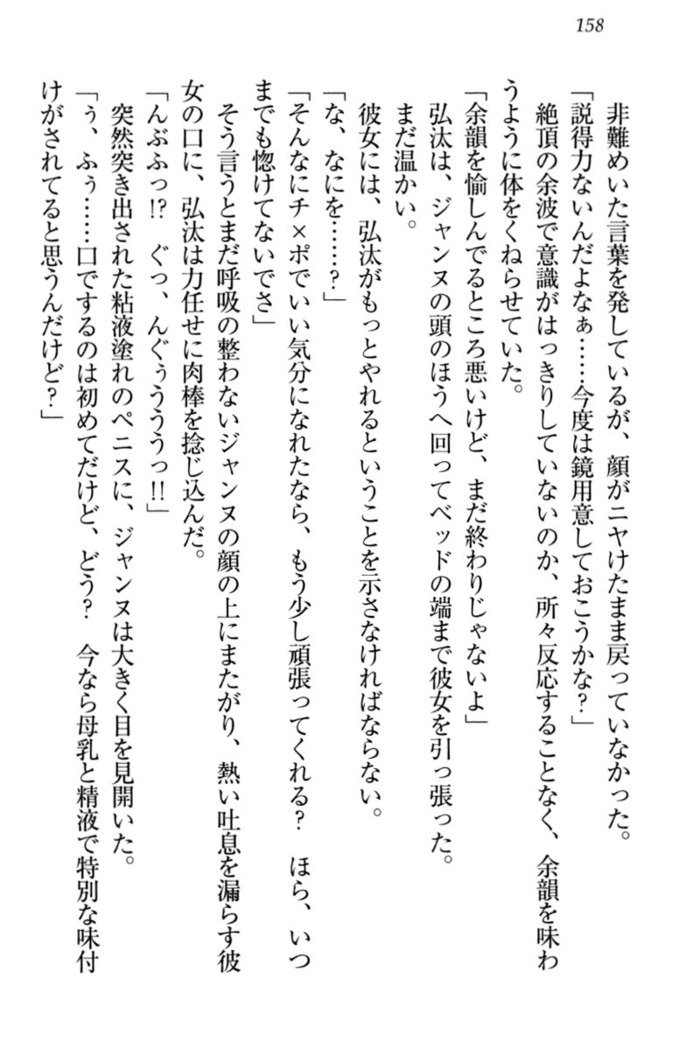 158
非難めいた言葉を発しているが、顔がニヤけたまま戻っていなかった。
「説得力ないんだよなぁ……今度は鏡用意しておこうかな？」
絶頂の余波で意識がはっきりしていないのか、所々反応することなく、余韻を味わ
うように体をくねらせていた。
「余韻を愉しんでるところ悪いけど、まだ終わりじゃないよ」
弘汰は、ジャンヌの頭のほうへ回ってベッドの端まで彼女を引っ張った。
まだ温かい。
彼女には、弘汰がもっとやれるということを示さなければならない。
「な、なにを……？」
「そんなにチ×ポでいい気分になれたなら、もう少し頑張ってくれる？　ほら、いつ
までも惚けてないでさ」
そう言うとまだ呼吸の整わないジャンヌの顔の上にまたがり、熱い吐息を漏らす彼
女の口に、弘汰は力任せに肉棒を捻じ込んだ。
「んぶふっ!?　ぐっ、んぐぅうううっ!!」
突然突き出された粘液塗れのペニスに、ジャンヌは大きく目を見開いた。
「ぅ、ふぅ……口でするのは初めてだけど、どう？　今なら母乳と精液で特別な味付
けがされてると思うんだけど？」